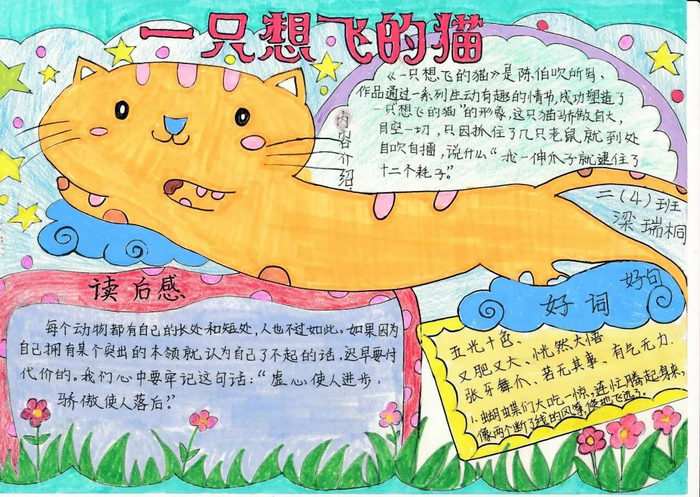 一只想飞的猫
内容介绍
《一只想飞的猫》是陈伯吹所写、
作品通过一系列生动有趣的情节,成功塑造了
一只想飞的猫"的形象,这只猫骄傲自大,
目空一切,只因抓住了几只老鼠就到处
自吹自擂,说什么"我一伸爪子就逮住了
十二个耗子"。
二(4)班
梁瑞桐
读后感
每个动物都有自己的长处和短处,人也不过如此,如果因为
自己拥有某个突出的本领就认为自己了不起的话,迟早要付
代价的。我们心中要牢记这句话:"虚心使人进步,
骄傲使人落后?"
好词
好句
五光十色
又肥又大、恍然大悟
张牙舞爪、若无其事、有气无力.
1.蝴蝶们大吃一惊,连忙腾起身来,
像两个断了线的风筝,